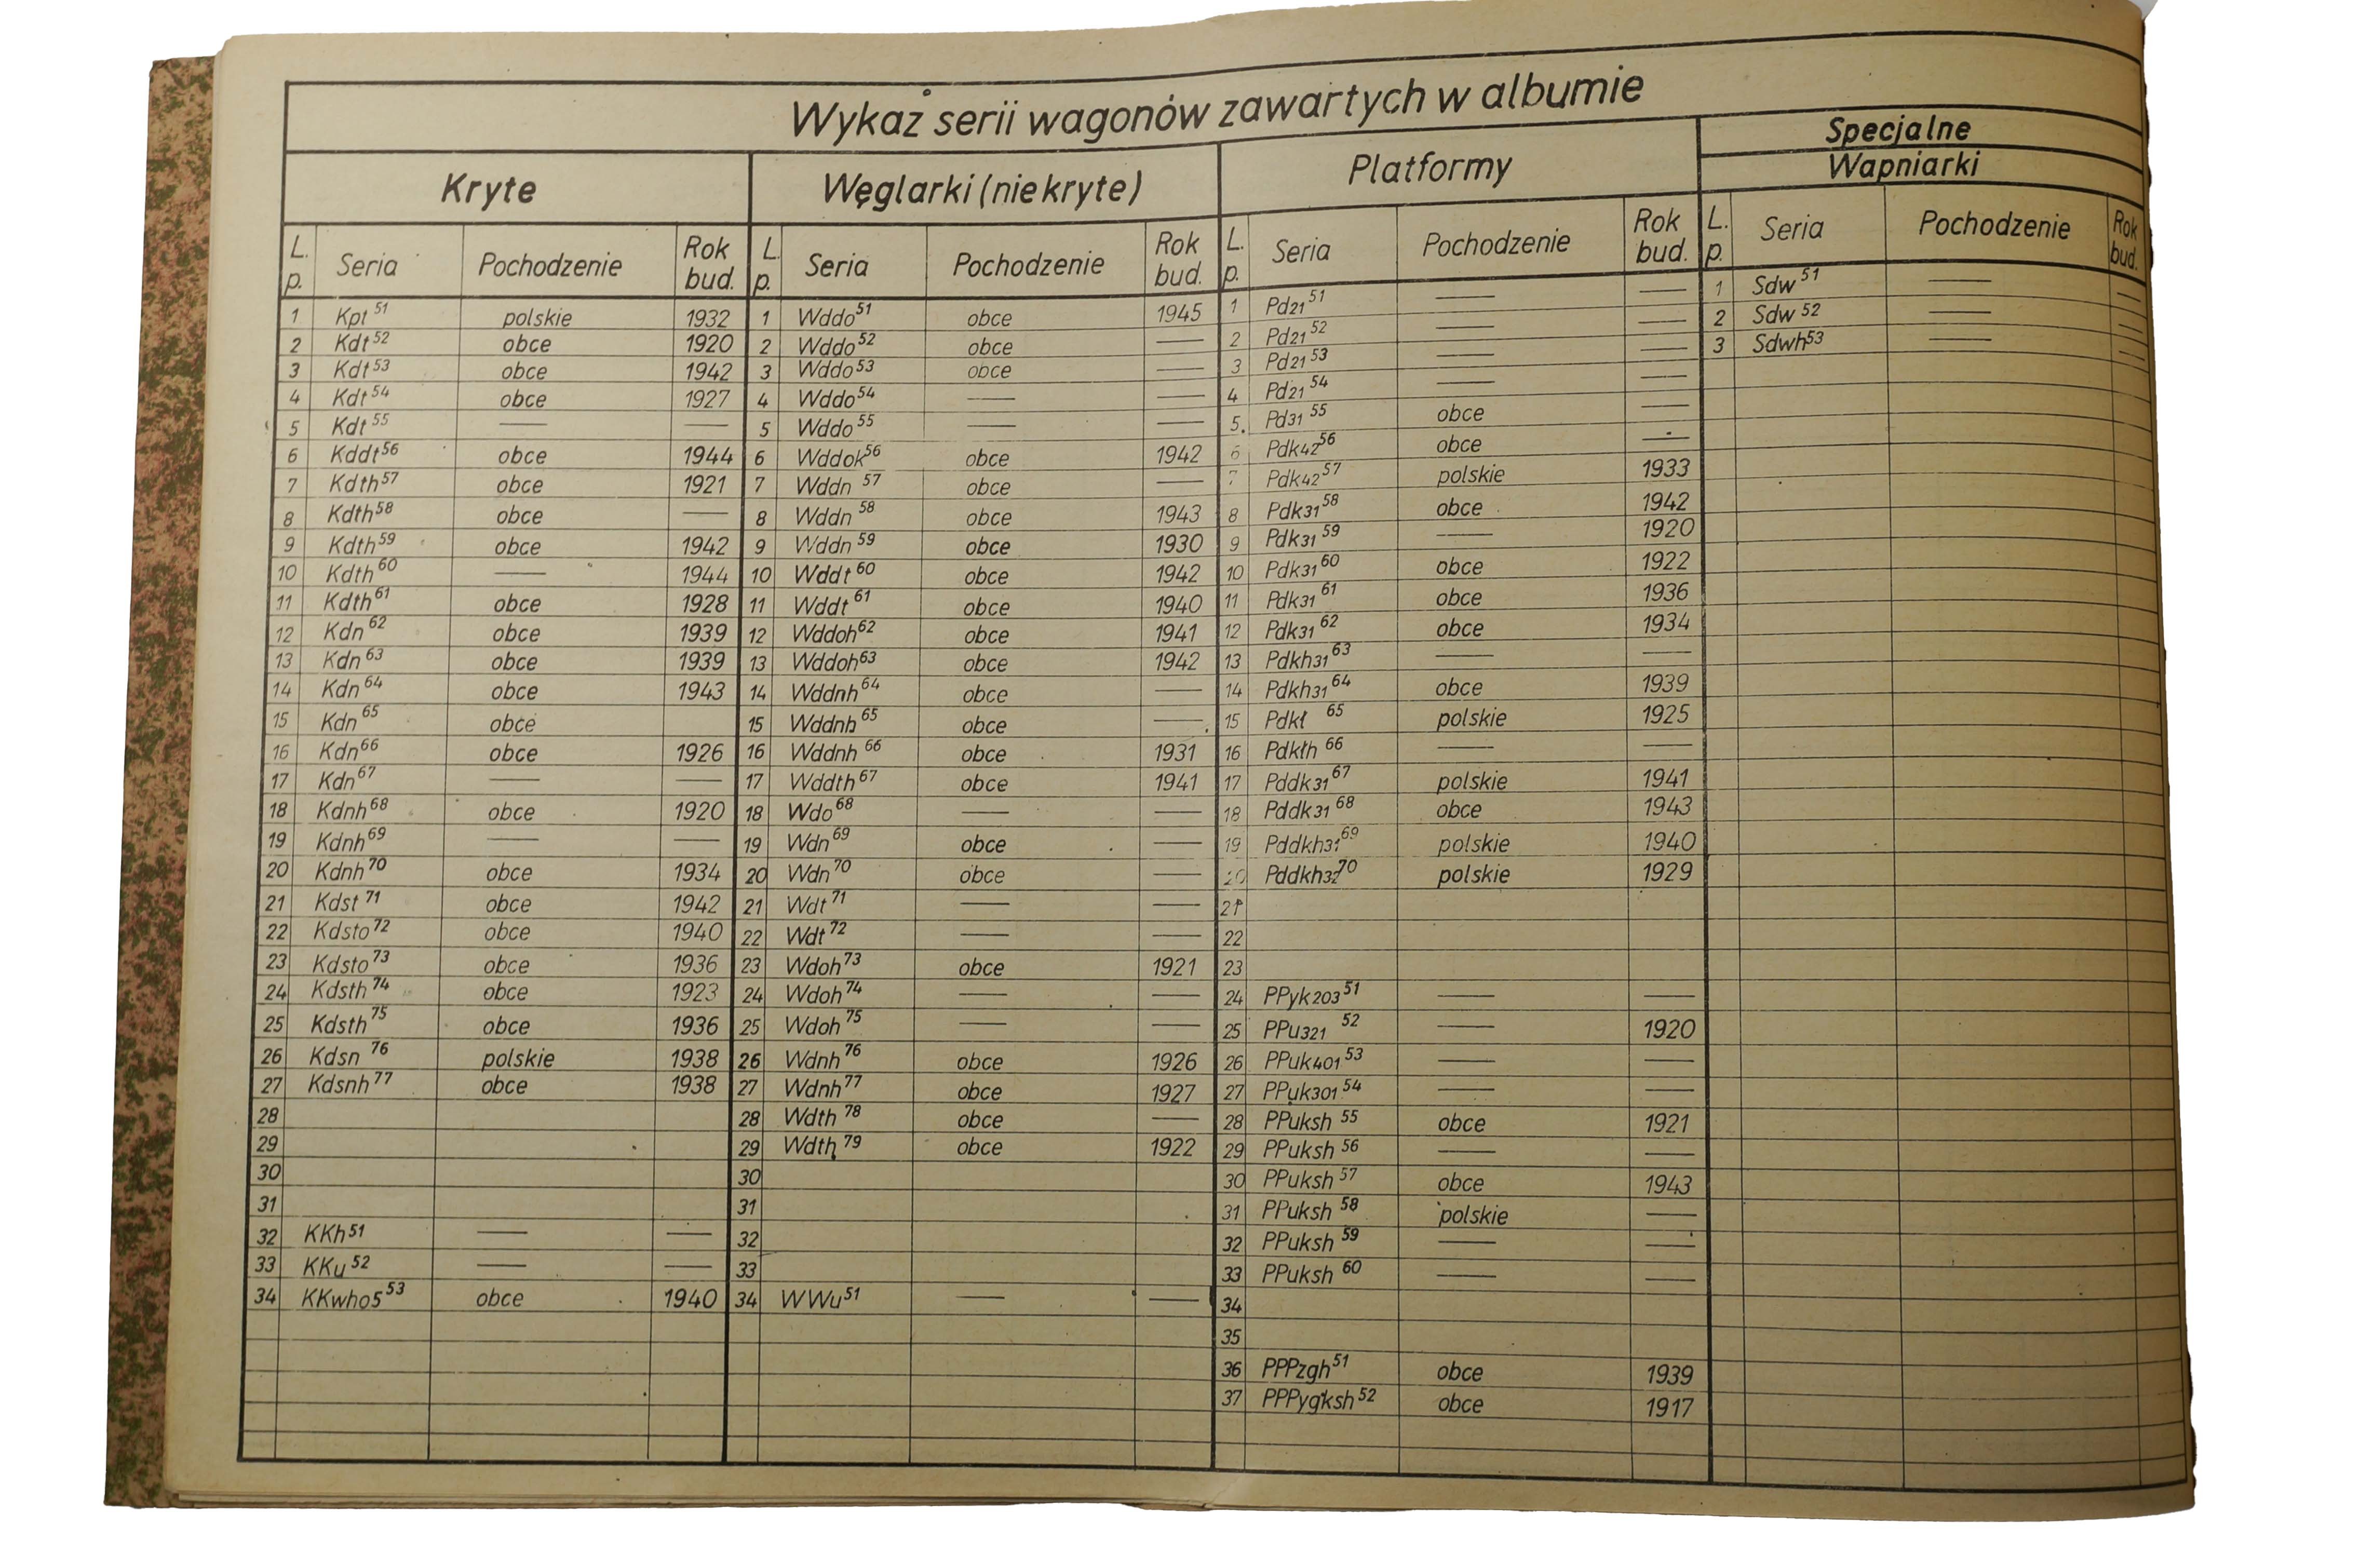 Wykaz serii wagonów zawartych w albumie
Kryte
L. p. Seria Pochodzenie Rok bud.
1 Kpt 51 polskie 1932
2 Kdt 52 obce 1920
3 Kdt 53 obce 1942
4 Kdt 54 obce 1927
5 Kdt 55 — —
6 Kddt 56 obce 1944
7 Kdth 57 obce 1921
8 Kdth 58 obce —
9 Kdth 59 obce 1942
10 Kdth 60 — 1944
11 Kdth 61 obce 1928
12 Kdn 62 obce 1939
13 Kdn 63 obce 1939
14 Kdn 64 obce 1943
15 Kdn 65 obce
16 Kdn 66 obce 1926
17 Kdn 67 — —
18 Kdnh 68 obce 1920
19 Kdnh 69 — —
20 Kdnh 70 obce 1934
21 Kdst 71 obce 1942
22 Kdsto 72 obce 1940
23 Kdsto 73 obce 1936
24 Kdsth 74 obce 1923
25 Kdsth 75 obce 1936
26 Kdsn 76 polskie 1938
27 Kdsnh 77 obce 1938
28
29
30
31
32 KKh 51 — —
33 KKu 52 — —
34 KKwho5 53 obce 1940
Węglarki (niekryte)
L. p. Seria Pochodzenie Rok bud.
1 Wddo 51 obce 1945
2 Wddo 52 obce —
3 Wddo 53 obce —
4 Wddo 54 — —
5 Wddo 55 — —
6 Wddok 56 obce 1942
7 Wddn 57 obce —
8 Wddn 58 obce 1943
9 Wddn 59 obce 1930
10 Wddt 60 obce 1942
11 Wddt 61 obce 1940
12 Wddoh 62 obce 1941
13 Wddoh 63 obce 1942
14 Wddnh 64 obce —
15 Wddnh 65 obce —
16 Wddnh 66 obce 1931
17 Wddth 67 obce 1941
18 Wdo 68 — —
19 Wdn 69 obce —
20 Wdn 70 obce —
21 Wdt 71 — —
22 Wdt 72 — —
23 Wdoh 73 obce 1921
24 Wdoh 74 — —
25 Wdoh 75 — —
26 Wdnh 76 obce 1926
27 Wdnh 77 obce 1927
28 Wdth 78 obce —
29 Wdth 79 obce 1922
30
31
32
33
34 WWu 51 — —
Platformy
L. p. Seria Pochodzenie Rok bud.
1 Pd21 51 — —
2 Pd21 52 — —
3 Pd21 53 — —
4 Pd21 54 — —
5. Pd31 55 obce —
6 Pdk42 56 obce —
7 Pdk42 57 polskie 1933
8 Pdk31 58 obce 1942
9 Pdk31 59 — 1920
10 Pdk31 60 obce 1922
11 Pdk31 61 obce 1936
12 Pdk31 62 obce 1934
13 Pdkh31 63 — —
14 Pdkh31 64 obce 1939
15 Pdkł 65 polskie 1925
16 Pdkłh 66 — —
17 Pddk31 67 polskie 1941
18 Pddk31 68 obce 1943
19 Pddkh31 69 polskie 1940
20 Pddkh32 70 polskie 1929
21
22
23
24 PPyk203 51 — —
25 PPu321 52 — 1920
26 PPuk401 53 — —
27 PPuk301 54 — —
28 PPuksh 55 obce 1921
29 PPuksh 56 — —
30 PPuksh 57 obce 1943
31 PPuksh 58 polskie —
32 PPuksh 59 — —
33 PPuksh 60 — —
34
35
36 PPPzgh 51 obce 1939
37 PPPygksh 52 obce 1917
Specjalne
Wapniarki
L. p. Seria Pochodzenie Rok bud.
1 Sdw 51 — —
2 Sdw 52 — —
3 Sdwh 53 — —